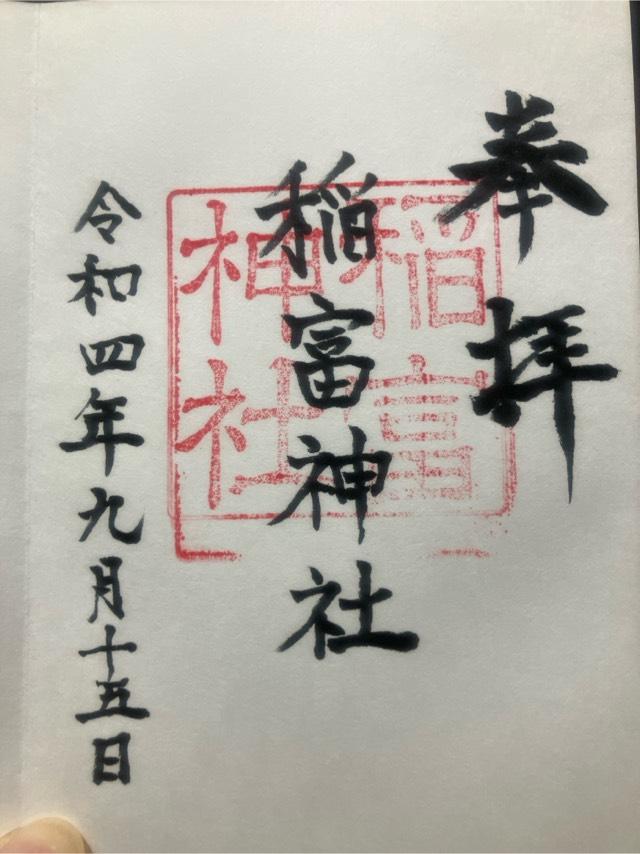 奉拝
稲富神社
稲富
神社
令和四年九月十五日